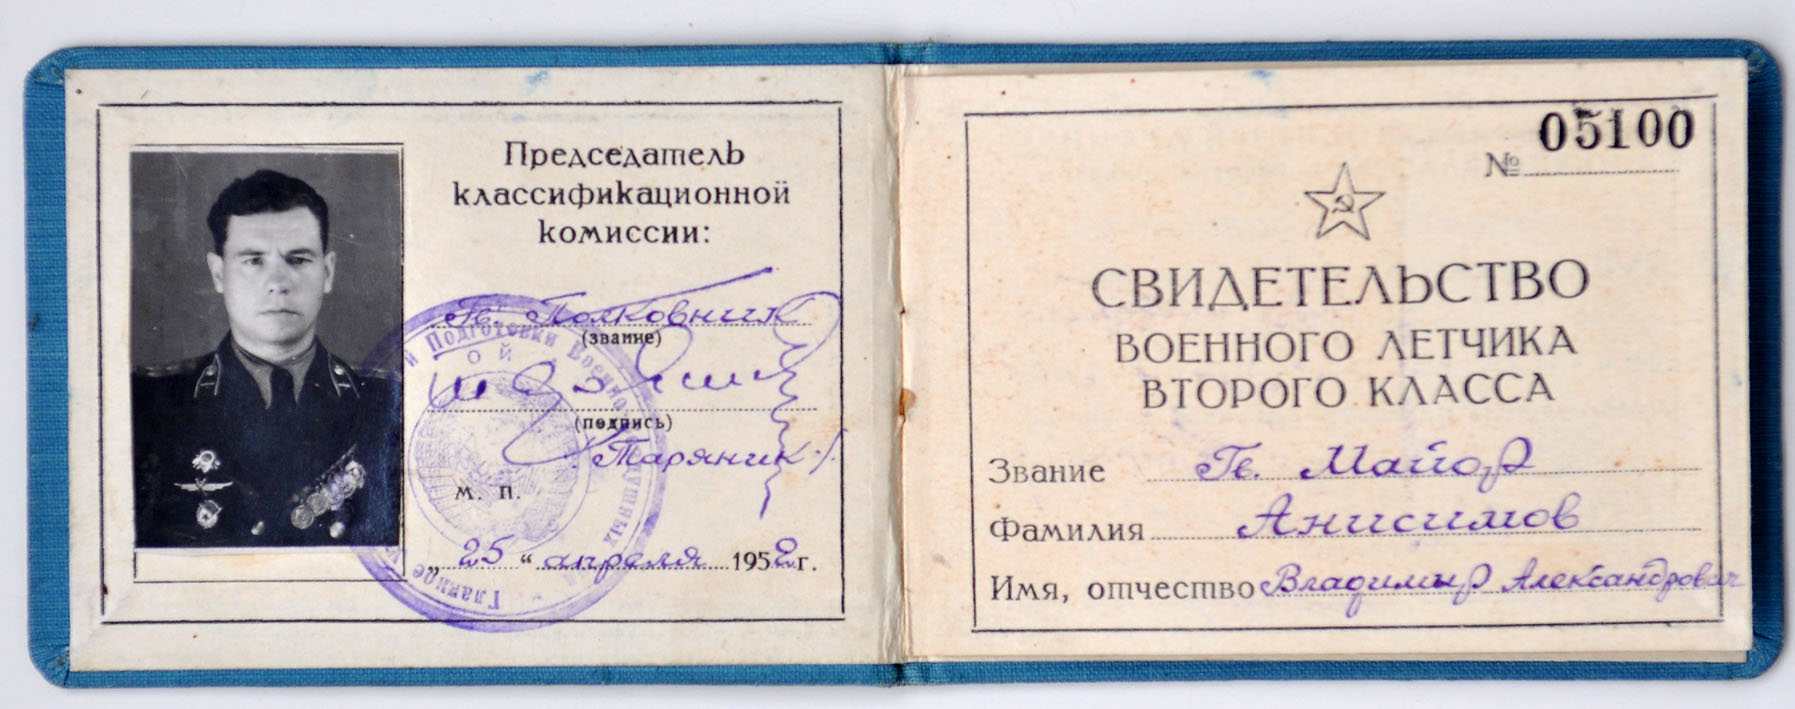 Председатель
классификационной
комиссии:
Гв. Полковник
(звание)
(подпись)
Таряник
м. п.
„25“ апреля 1952 г.
Главное
й Подготовки Военно
№ 05100
СВИДЕТЕЛЬСТВО
ВОЕННОГО ЛЕТЧИКА
ВТОРОГО КЛАССА
Звание Гв. Майор
Фамилия Анисимов
Имя, отчество Владимир Александрович